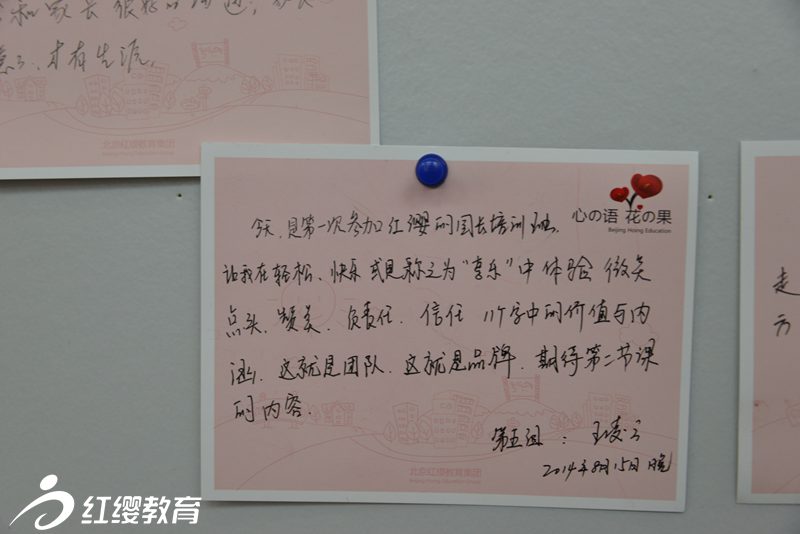 和家长很好的沟通，
才有生源。
北京红缨教育集团
心の语 花の果
Beijing Hoing Education
今天，是第一次参加红缨的园长培训班，
让我在轻松、快乐或是称之为“享乐”中体验 微笑
点头、赞美、负责任、信任 11个字中的价值与内
涵，这就是团队，这就是品牌，期待第二节课
的内容。
第五组：王凌云
2014年8月15日晚
北京红缨教育集团
Beijing Hoing Education Group
走
方
红缨教育